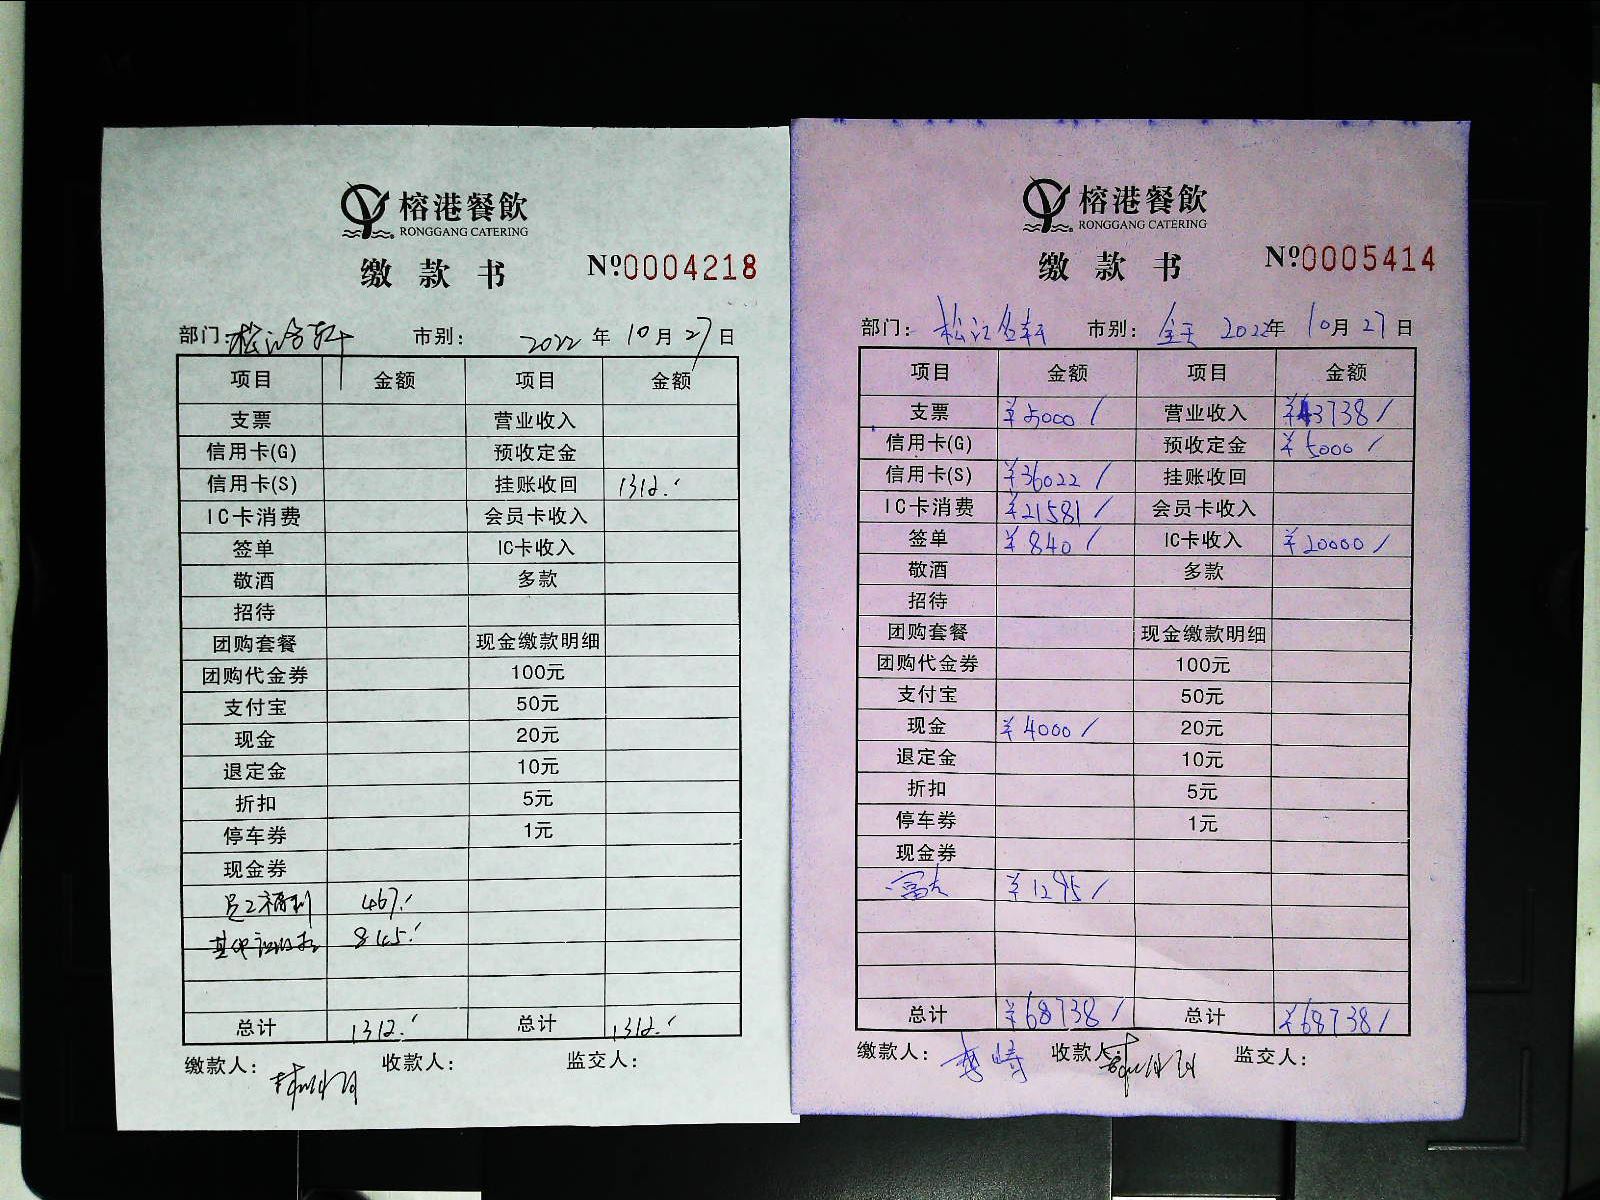 榕港餐飲
RONGGANG CATERING
缴款书 Nº0004218
部门: 松江名轩 市别: 2022年10月27日
项目 金额 项目 金额
支票 营业收入
信用卡(G) 预收定金
信用卡(S) 挂账收回 1312.
IC卡消费 会员卡收入
签单 IC卡收入
敬酒 多款
招待
团购套餐 现金缴款明细
团购代金券 100元
支付宝 50元
现金 20元
退定金 10元
折扣 5元
停车券 1元
现金券
员工福利 467.
其他 845.
总计 1312. 总计 1312.
缴款人: 收款人: 监交人:
榕港餐飲
RONGGANG CATERING
缴款书 Nº0005414
部门: 松江名轩 市别: 全天 2022年10月27日
项目 金额 项目 金额
支票 ¥5000/ 营业收入 ¥43738/
信用卡(G) 预收定金 ¥5000/
信用卡(S) ¥36022/ 挂账收回
IC卡消费 ¥21581/ 会员卡收入
签单 ¥840/ IC卡收入 ¥20000/
敬酒 多款
招待
团购套餐 现金缴款明细
团购代金券 100元
支付宝 50元
现金 ¥4000/ 20元
退定金 10元
折扣 5元
停车券 1元
现金券
¥1295/
总计 ¥68738/ 总计 ¥68738/
缴款人: 收款人: 监交人: